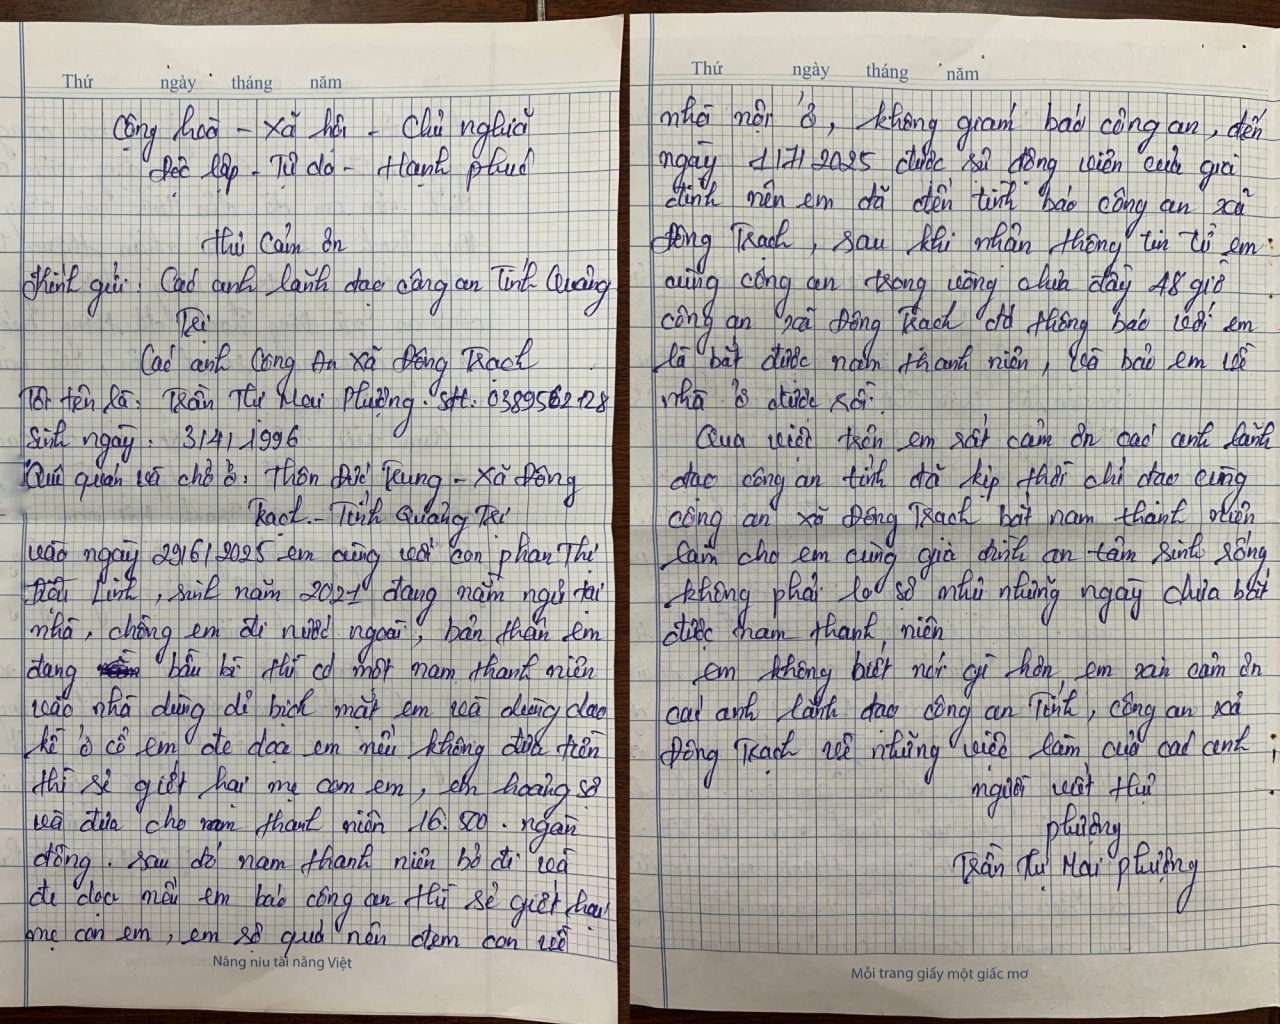 Thứ ngày tháng năm
Cộng hoà - Xã hội - Chủ nghiã
Độc lập - Tự do - Hạnh phuc
Thư Cảm ơn
Kính gửi: Các anh lãnh đạo công an Tỉnh Quảng
Trị
Các anh Công An xã Đông Trạch
Tôi tên là: Trần Thị Mai Phượng. sđt: 0389562128
Sinh ngày: 3/4/1996
Quê quán và chổ ở: Thôn Đức Trung - Xã Đông
Trạch - Tỉnh Quảng Trị
vào ngày 29/6/2025 em cùng với con phan Thị
Diệu Linh, sinh năm 2021 đang nằm ngủ tại
nhà, chồng em đi nước ngoài, bản thân em
đang bầu bì thì có một nam thanh niên
vào nhà dùng dẻ bịch mặt em và dùng dao
kề ở cổ em đe dọa em nếu không đưa tiền
thì sẽ giết hai mẹ con em, em hoảng sợ
và đưa cho nam thanh niên 16.500. ngàn
đồng. sau đó nam thanh niên bỏ đi và
đe dọa nếu em báo công an thì sẽ giết hai
mẹ con em, em sợ quá nên đem con về
Nâng niu tài năng Việt
Thứ ngày tháng năm
nhà nội ở, không giám báo công an, đến
ngày 1/7/2025 được sự động viên của gia
đình nên em đã đến trình báo công an xã
Đông Trạch, sau khi nhận thông tin từ em
cùng công an trong vòng chưa đầy 48 giờ
công an xã Đông Trạch đã thông báo với em
là bắt được nam thanh niên, và bảo em về
nhà ở được rồi.
Qua việc trên em rất cảm ơn các anh lãnh
đạo công an tỉnh đã kịp thời chỉ đạo cùng
công an xã Đông Trạch bắt nam thanh niên
làm cho em cùng gia đình an tâm sinh sống
không phải lo sợ như những ngày chưa bắt
được nam thanh niên
em không biết nói gì hơn, em xin cảm ơn
các anh lãnh đạo công an Tỉnh, công an xã
Đông Trạch về những việc làm của các anh
người viết thư
phượng
Trần Thị Mai Phượng
Mỗi trang giấy một giấc mơ